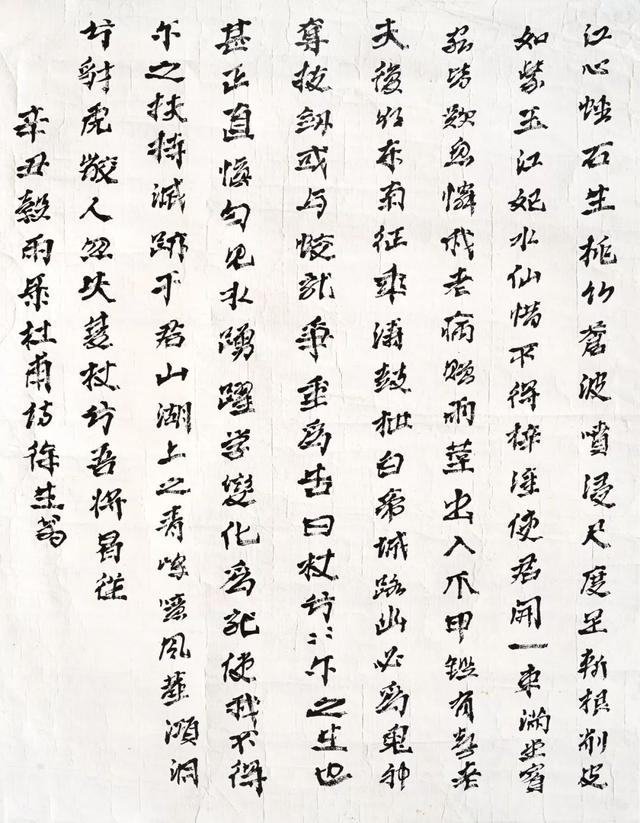 江心蟠石生桃竹蒼波噴浸尺度足斬根削皮
如紫玉江妃水仙惜不得梓潼使君開一束滿堂賓
客皆歎息憐我老病贈兩莖出入爪甲鏗有聲老
夫復欲東南征乘濤鼓枻白帝城路幽必為鬼神
奪拔劍或与蛟龍爭重為告曰杖兮〻尔之生也
甚正直慎勿見水踴躍學變化為龍使我不得
尔之扶持滅跡于君山湖上之青峰噫風塵澒洞
兮豺虎齩人忽失雙杖兮吾將曷從
辛丑穀雨录杜甫詩徐生翁